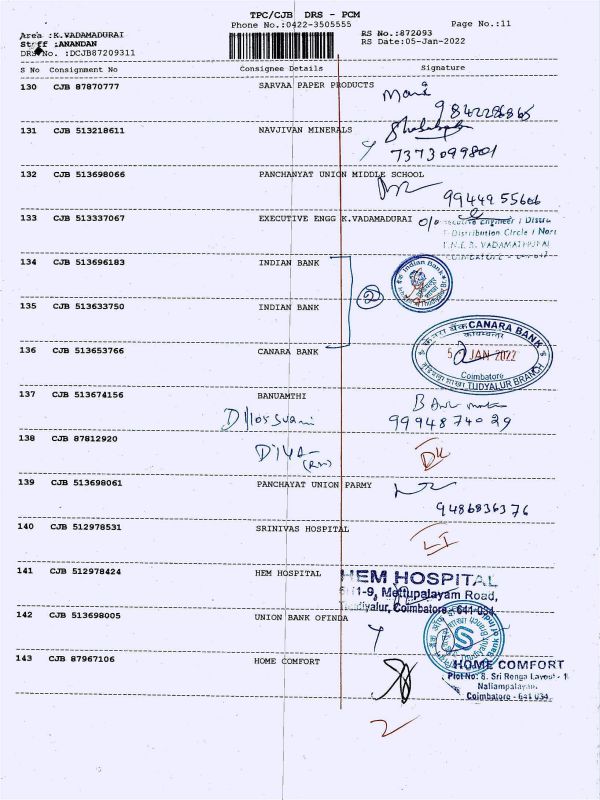 TPC/CJB DRS - PCM
Phone No.:0422-3505555 Page No.:11
Area :K.VADAMADURAI RS No.:872093
Staff :ANANDAN RS Date:05-Jan-2022
DRS No. :DCJB87209311
S No Consignment No Consignee Details Signature
130 CJB 87870777 SARVAA PAPER PRODUCTS
9842286865
131 CJB 513218611 NAVJIVAN MINERALS
7373099801
132 CJB 513698066 PANCHANYAT UNION MIDDLE SCHOOL
9944955666
133 CJB 513337067 EXECUTIVE ENGG K.VADAMADURAI O/o Engineer / Distri
Distribution Circle / Nort
T.N.E.B. VADAMATHURAI
134 CJB 513696183 INDIAN BANK Indian Bank
2
135 CJB 513633750 INDIAN BANK
136 CJB 513653766 CANARA BANK
केनरा बैंक CANARA BANK
5 JAN 2022
Coimbatore
TUDIYALUR BRANCH
137 CJB 513674156 BANUAMTHI
9994874029
138 CJB 87812920 DIYA
DK
139 CJB 513698061 PANCHAYAT UNION PARMY
9486836376
140 CJB 512978531 SRINIVAS HOSPITAL
141 CJB 512978424 HEM HOSPITAL HEM HOSPITAL
1-9, Mettupalayam Road,
Tudiyalur, Coimbatore - 641 034
142 CJB 513698005 UNION BANK OFINDA
143 CJB 87967106 HOME COMFORT HOME COMFORT
Plot No: 8. Sri Renga Layout - 1
Nallampalayam,
Coimbatore - 641 034
2